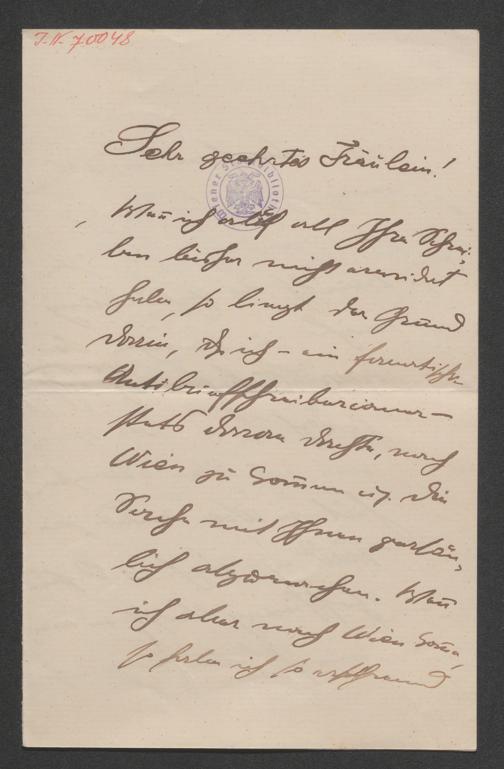 J.N. 70048
Sehr geehrtes Fräulein!
Wiener Stadtbibliothek
Wenn ich auf all Ihre Schrei-
ben bisher nicht erwidert
habe, so liegt der Grund
darin, daß ich – ein fanatischer
Antibriefschreiber
stets daran dachte, nach
Wien zu kommen u. die
Sache mit Ihnen persön-
lich abzumachen. Wenn
ich aber nach Wien komme
so habe ich so